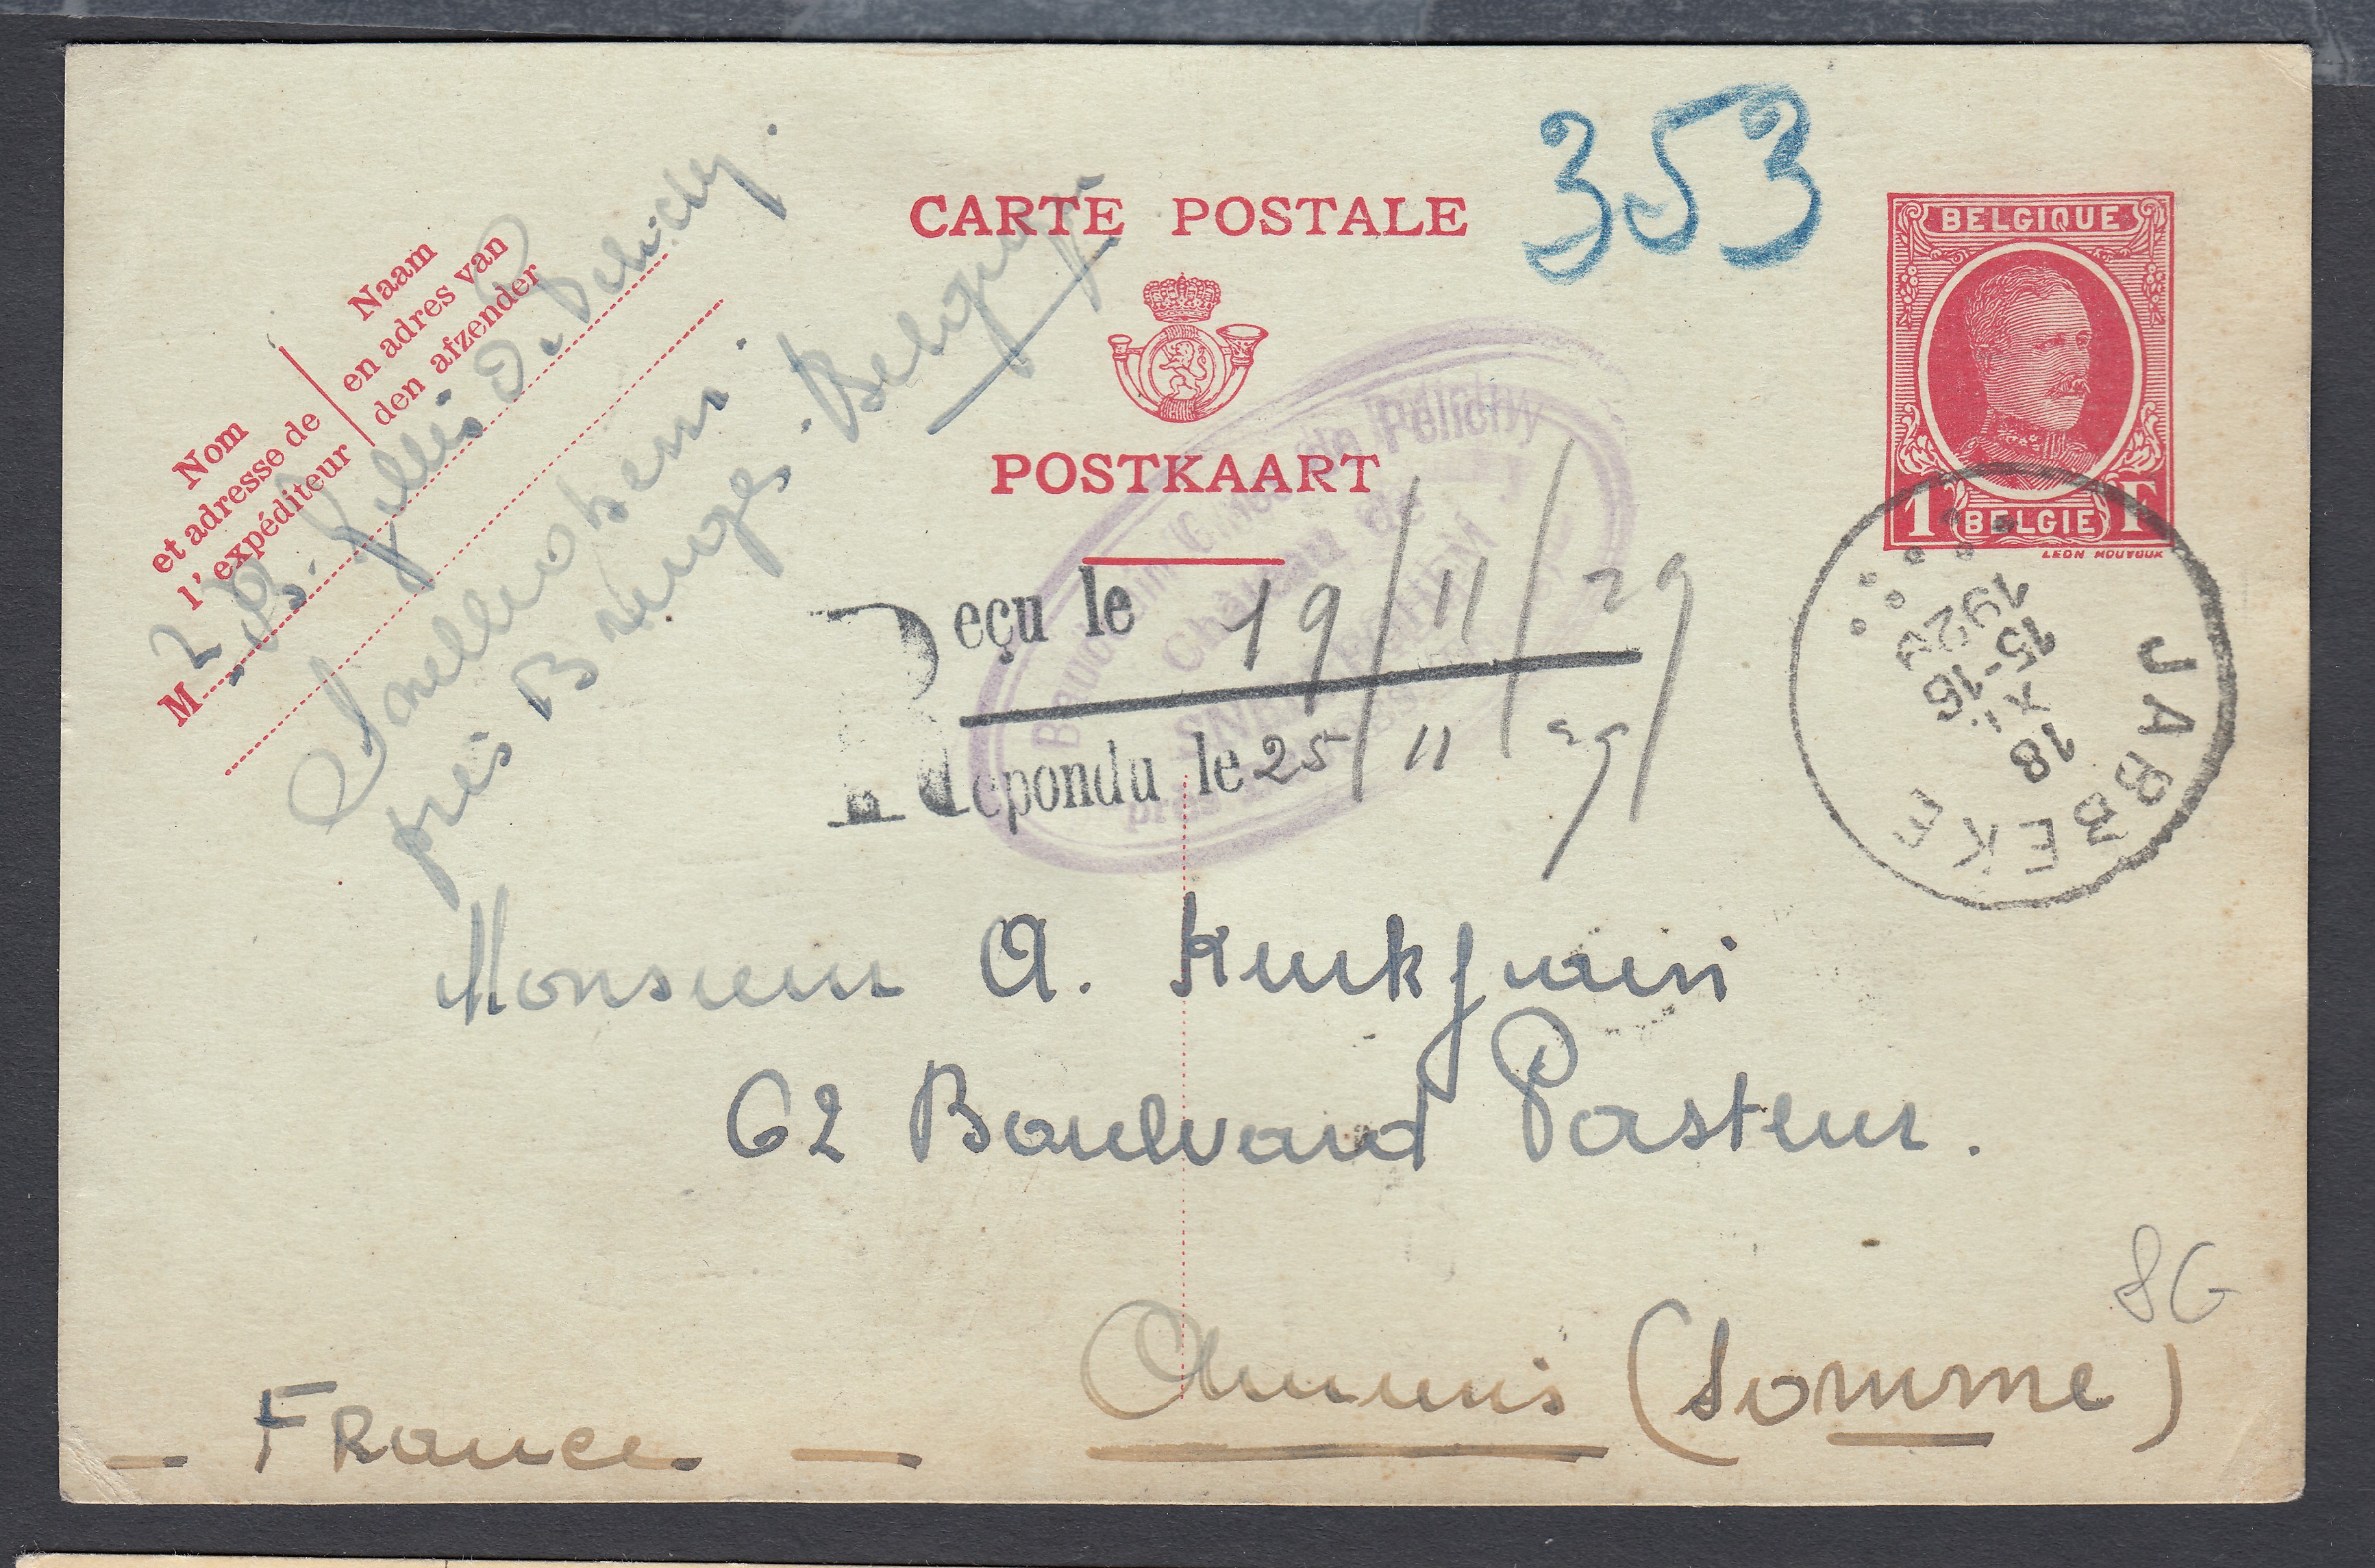 353
CARTE POSTALE
BELGIQUE
1 F
BELGIE
POSTKAART
Naam
en adres van
den afzender
Nom
et adresse de
l'expéditeur
M
B. Gilles d. Pélichy.
Snelleghem.
près Bruges. Belgique
Baudouin Gilles de Pélichy
Château de
SNELLEGHEM
près
Reçu le 19/11/29
Répondu le 25/11/29
JABBEKE
18
XI
15-16
1929
Monsieur A.
62 Boulevard Pasteur.
Amiens (Somme)
- France -